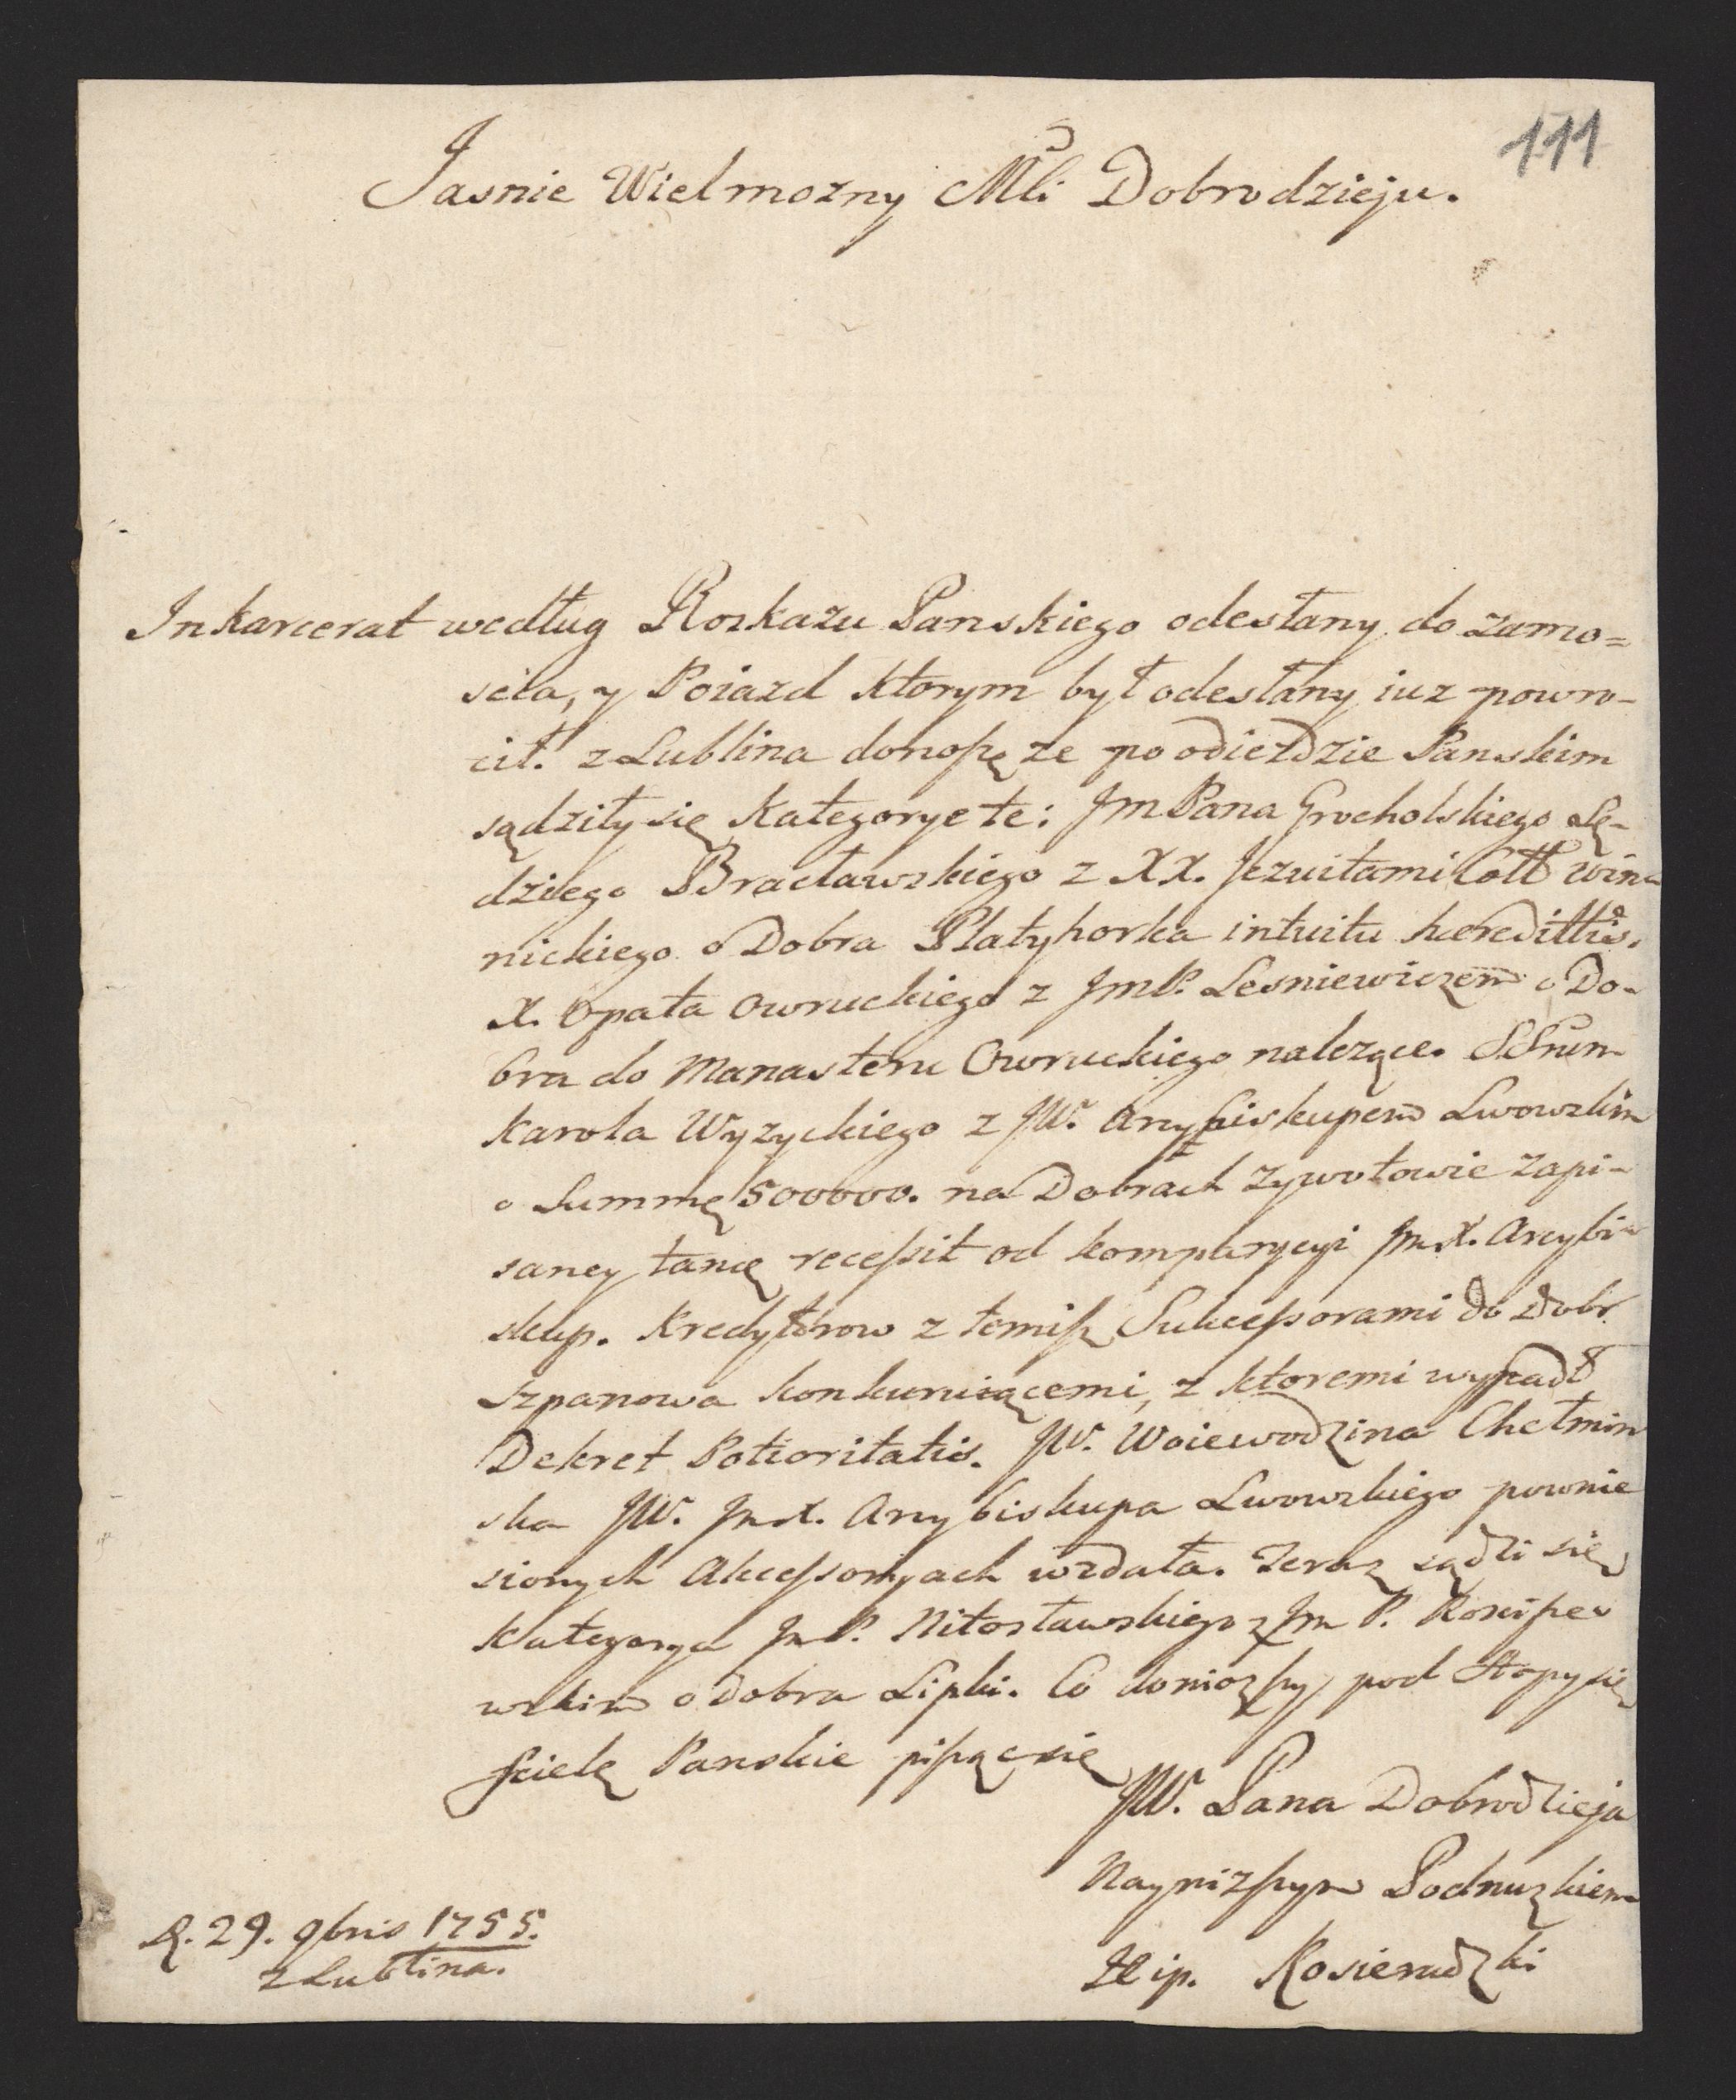 111
Jasnie Wielmozny Mći Dobrodzieju.
Inkarcerat według Roskazu Panskiego odesłany do Zamo=
scia, y Poiazd ktorym był odesłany iuz powro-
cił. z Lublina donoszę ze po odieżdzie Panskim
sądziły się Kategorye te: JmPana Grocholskiego Sę-
dziego Bracławskiego z XX. Jezuitami Coll Win-
nickiego o Dobra Płatyhorka intuitu heredittis.
X. Opata Owruckiego z JmP. Lesniewiczem o Do-
bra do Manasteru Owruckiego nalezące.
Karola Wyzyckiego z JW. Arcybiskupem Lwowskim
o Summę 500000. na Dobrach Zywotowie zapi-
saney tancę recessit od komparycyi Jm X. Arcybi-
skup. Kredytorow z temisz Sukcessorami do Dobr
Szpanowa konkuruiącemi, z ktoremi wypadł
Dekret Potioritatis. JW. Woiewodzina Chełmin
ska JW. Jm X. Arcybiskupa Lwowskiego pownie
sionych Akcessoryach wzdała. Teraz sądzi się
Kategorya Jm P. Miłosławskiego z Jm P.
wskim o Dobra Lipki. Co doniozszy, pod Stopy się
scielę Panskie piszącsię
JW. Pana Dobrodzieja
Naynizszym Podnuzkiem
Hip. Kosieradzki
D. 29. 9bris 1755.
z Lublina.